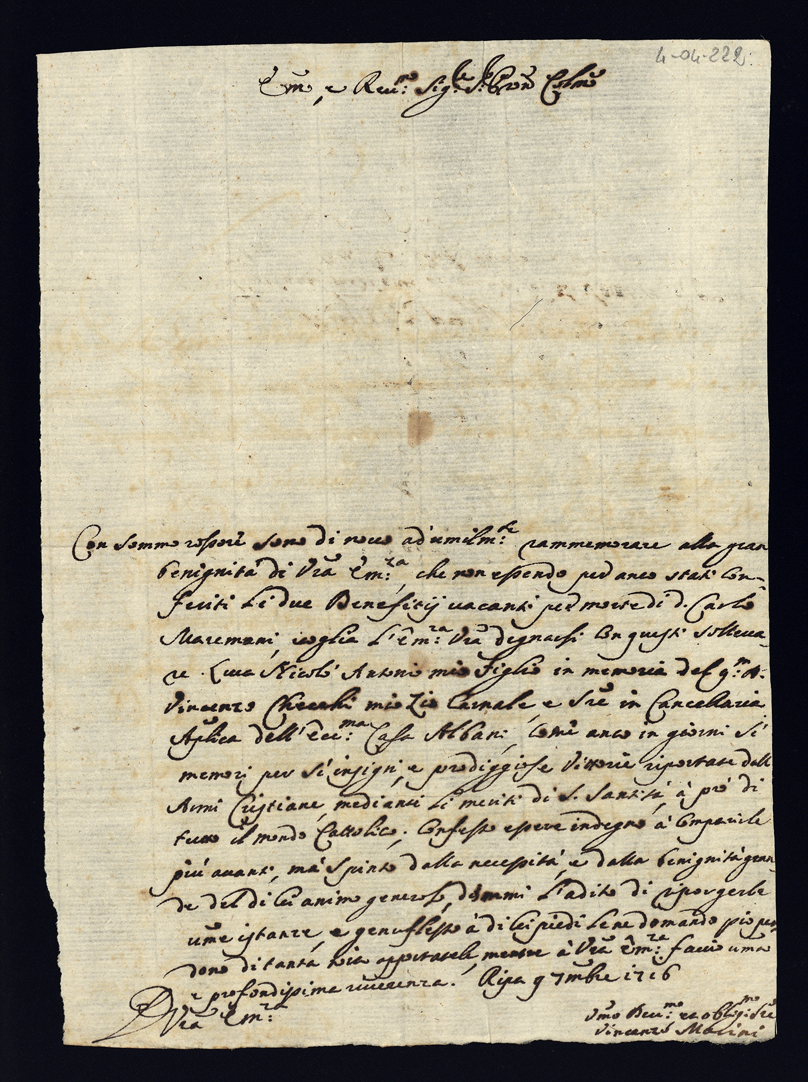 4-04-222
Em̃o, e Reu.mo Sig.re S.r Pron Colmo
Con sommo rossore sono di nuouo ad'umilm.te rammemorare alla gran
benignità di Vrã Em.za, che non essendo per anco stati con-
feriti li due Benefitij uacanti per morte di D. Carlo
Maremoni, uoglia l'Em.za Vrã degnarsi con questi solleua-
re Luca Nicolò Antonio mio figlio in memoria del q.m D.
Vincenzo Checchi mio Zio Carnale e Sre in Cancellaria
Aplica dell'Ecc.ma Casa Albani, come anco in giorni sì
memori per sì insigni, e prodiggiose Vittorie riportate dall
Armi Cristiane, medianti li meriti di S. Santità, à prò di
tutto il mondo Cattolico. Confesso essere indegno à comparirle
più auanti, mà spinto dalla necessità, e dalla benignità gran
de del di lei animo generoso, dammi l'adito di riporgerle
ume istanze, e genuflesso à di lei piedi le ne domando pio per
dono di tanta noia apportatali, mentre à Vrã Em.za faccio uma
e profondissima riuerenza. Ripa 9 7mbre 1716
D Vrã Em.za
Vmo Deu.mo ed oblig.mo Sre
Vincenzo Masini